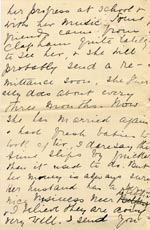 her progress at School &
with her music. Some
friends came from
Clapham quite lately
to see her, & she will
probably send a re-
mittance soon, she
sely does about every
three months. Now
she has married again
& had fresh babies to
look after, I daresay the
time slips by quicker
than it used to do. But
her money is always sure
her husband has a very
nice Business near
& I believe they are doing
very well. I send you